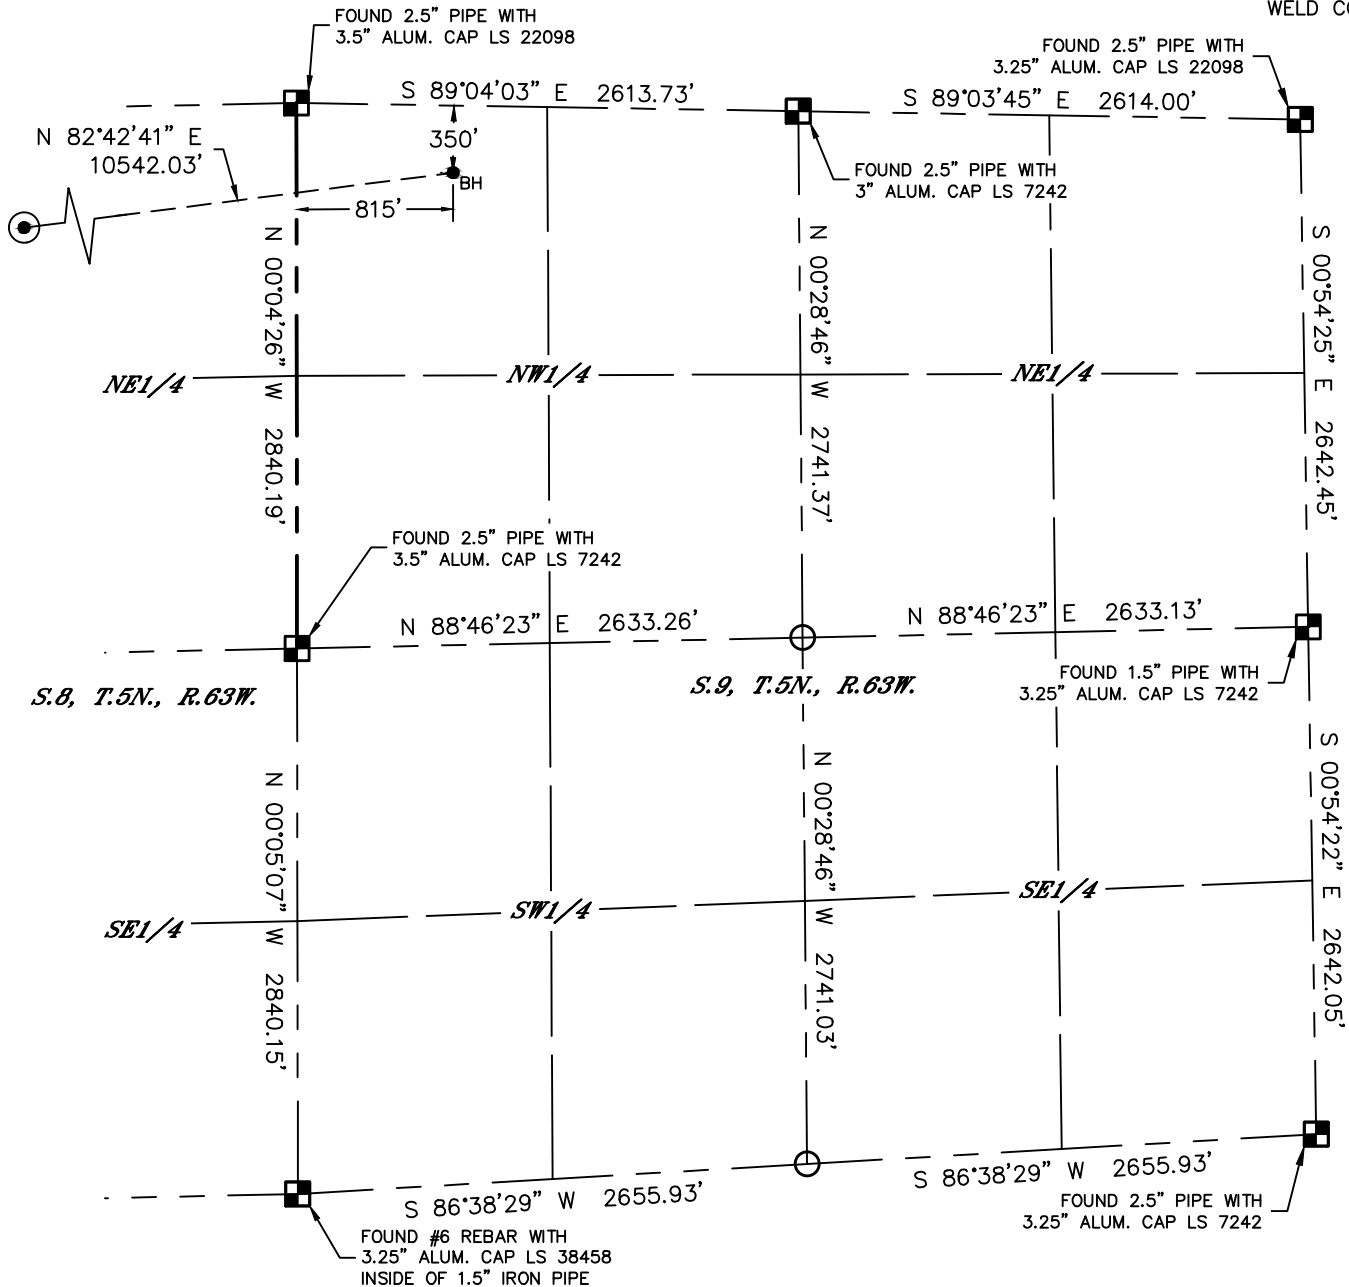 WELD CO
FOUND 2.5" PIPE WITH
3.5" ALUM. CAP LS 22098
FOUND 2.5" PIPE WITH
3.25" ALUM. CAP LS 22098
S 89°04'03" E 2613.73'
S 89°03'45" E 2614.00'
N 82°42'41" E
10542.03'
350'
BH
815'
FOUND 2.5" PIPE WITH
3" ALUM. CAP LS 7242
N 00°04'26" W 2840.19'
N 00°28'46" W 2741.37'
S 00°54'25" E 2642.45'
NE1/4
NW1/4
NE1/4
FOUND 2.5" PIPE WITH
3.5" ALUM. CAP LS 7242
N 88°46'23" E 2633.26'
N 88°46'23" E 2633.13'
S.8, T.5N., R.63W.
S.9, T.5N., R.63W.
FOUND 1.5" PIPE WITH
3.25" ALUM. CAP LS 7242
N 00°05'07" W 2840.15'
N 00°28'46" W 2741.03'
S 00°54'22" E 2642.05'
SE1/4
SW1/4
SE1/4
S 86°38'29" W 2655.93'
S 86°38'29" W 2655.93'
FOUND 2.5" PIPE WITH
3.25" ALUM. CAP LS 7242
FOUND #6 REBAR WITH
3.25" ALUM. CAP LS 38458
INSIDE OF 1.5" IRON PIPE